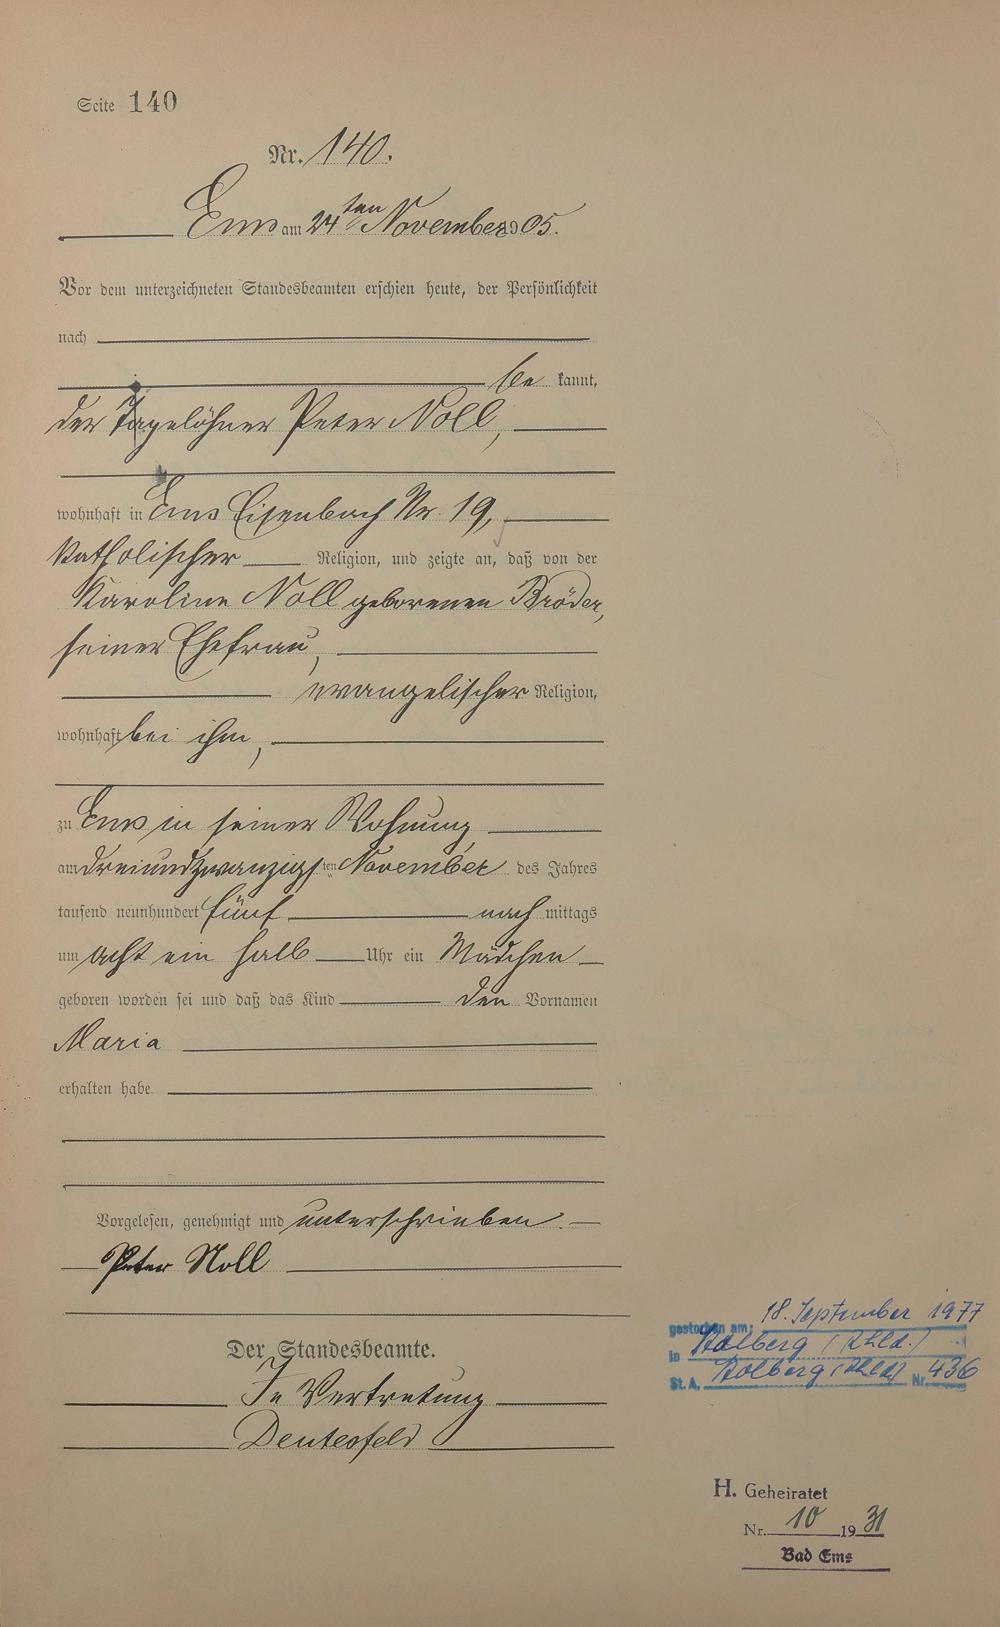 Seite 140
Nr. 140.
Ems am 24ten November 1905.
Vor dem unterzeichneten Standesbeamten erschien heute, der Persönlichkeit
nach
be kannt,
der Tagelöhner Peter Noll,
wohnhaft in Ems Eisenbach Nr. 19,
katholischer Religion, und zeigte an, daß von der
Karoline Noll geborenen Bröder,
seiner Ehefrau,
evangelischer Religion,
wohnhaft bei ihm,
zu Ems in seiner Wohnung
am dreiundzwanzigsten November des Jahres
tausend neunhundert fünf nach mittags
um acht ein halb Uhr ein Mädchen
geboren worden sei und daß das Kind den Vornamen
Maria
erhalten habe.
Vorgelesen, genehmigt und unterschrieben.
Peter Noll
Der Standesbeamte.
In Vertretung
gestorben am: 18. September 1977
in Stolberg (Rhld.)
St. A. Stolberg (Rhld) Nr. 436
H. Geheiratet
Nr. 10 1931
Bad Ems